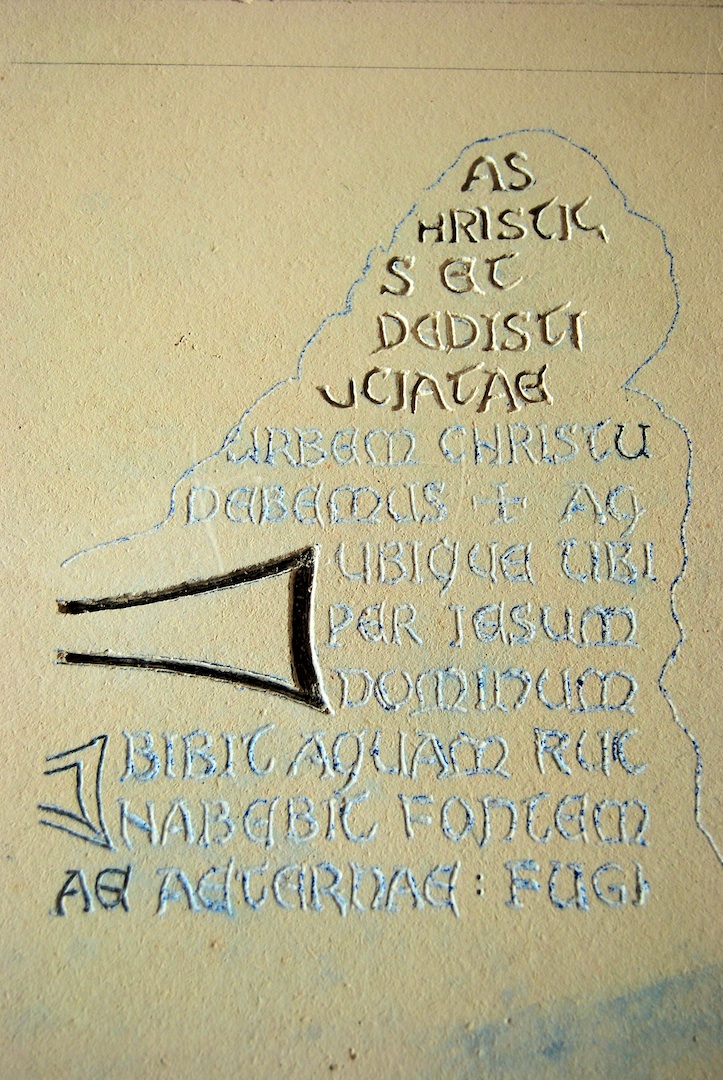 AS
HRISTI
S ET
DEDISTI
UCIATAE
URBEM CHRISTU
DEBEMUS + AQ
UBIQUE TIBI
PER JESUM
DOMINUM
BIBIT AQUAM RUC
HABEBIT FONTEM
AE AETERNAE : FUGI